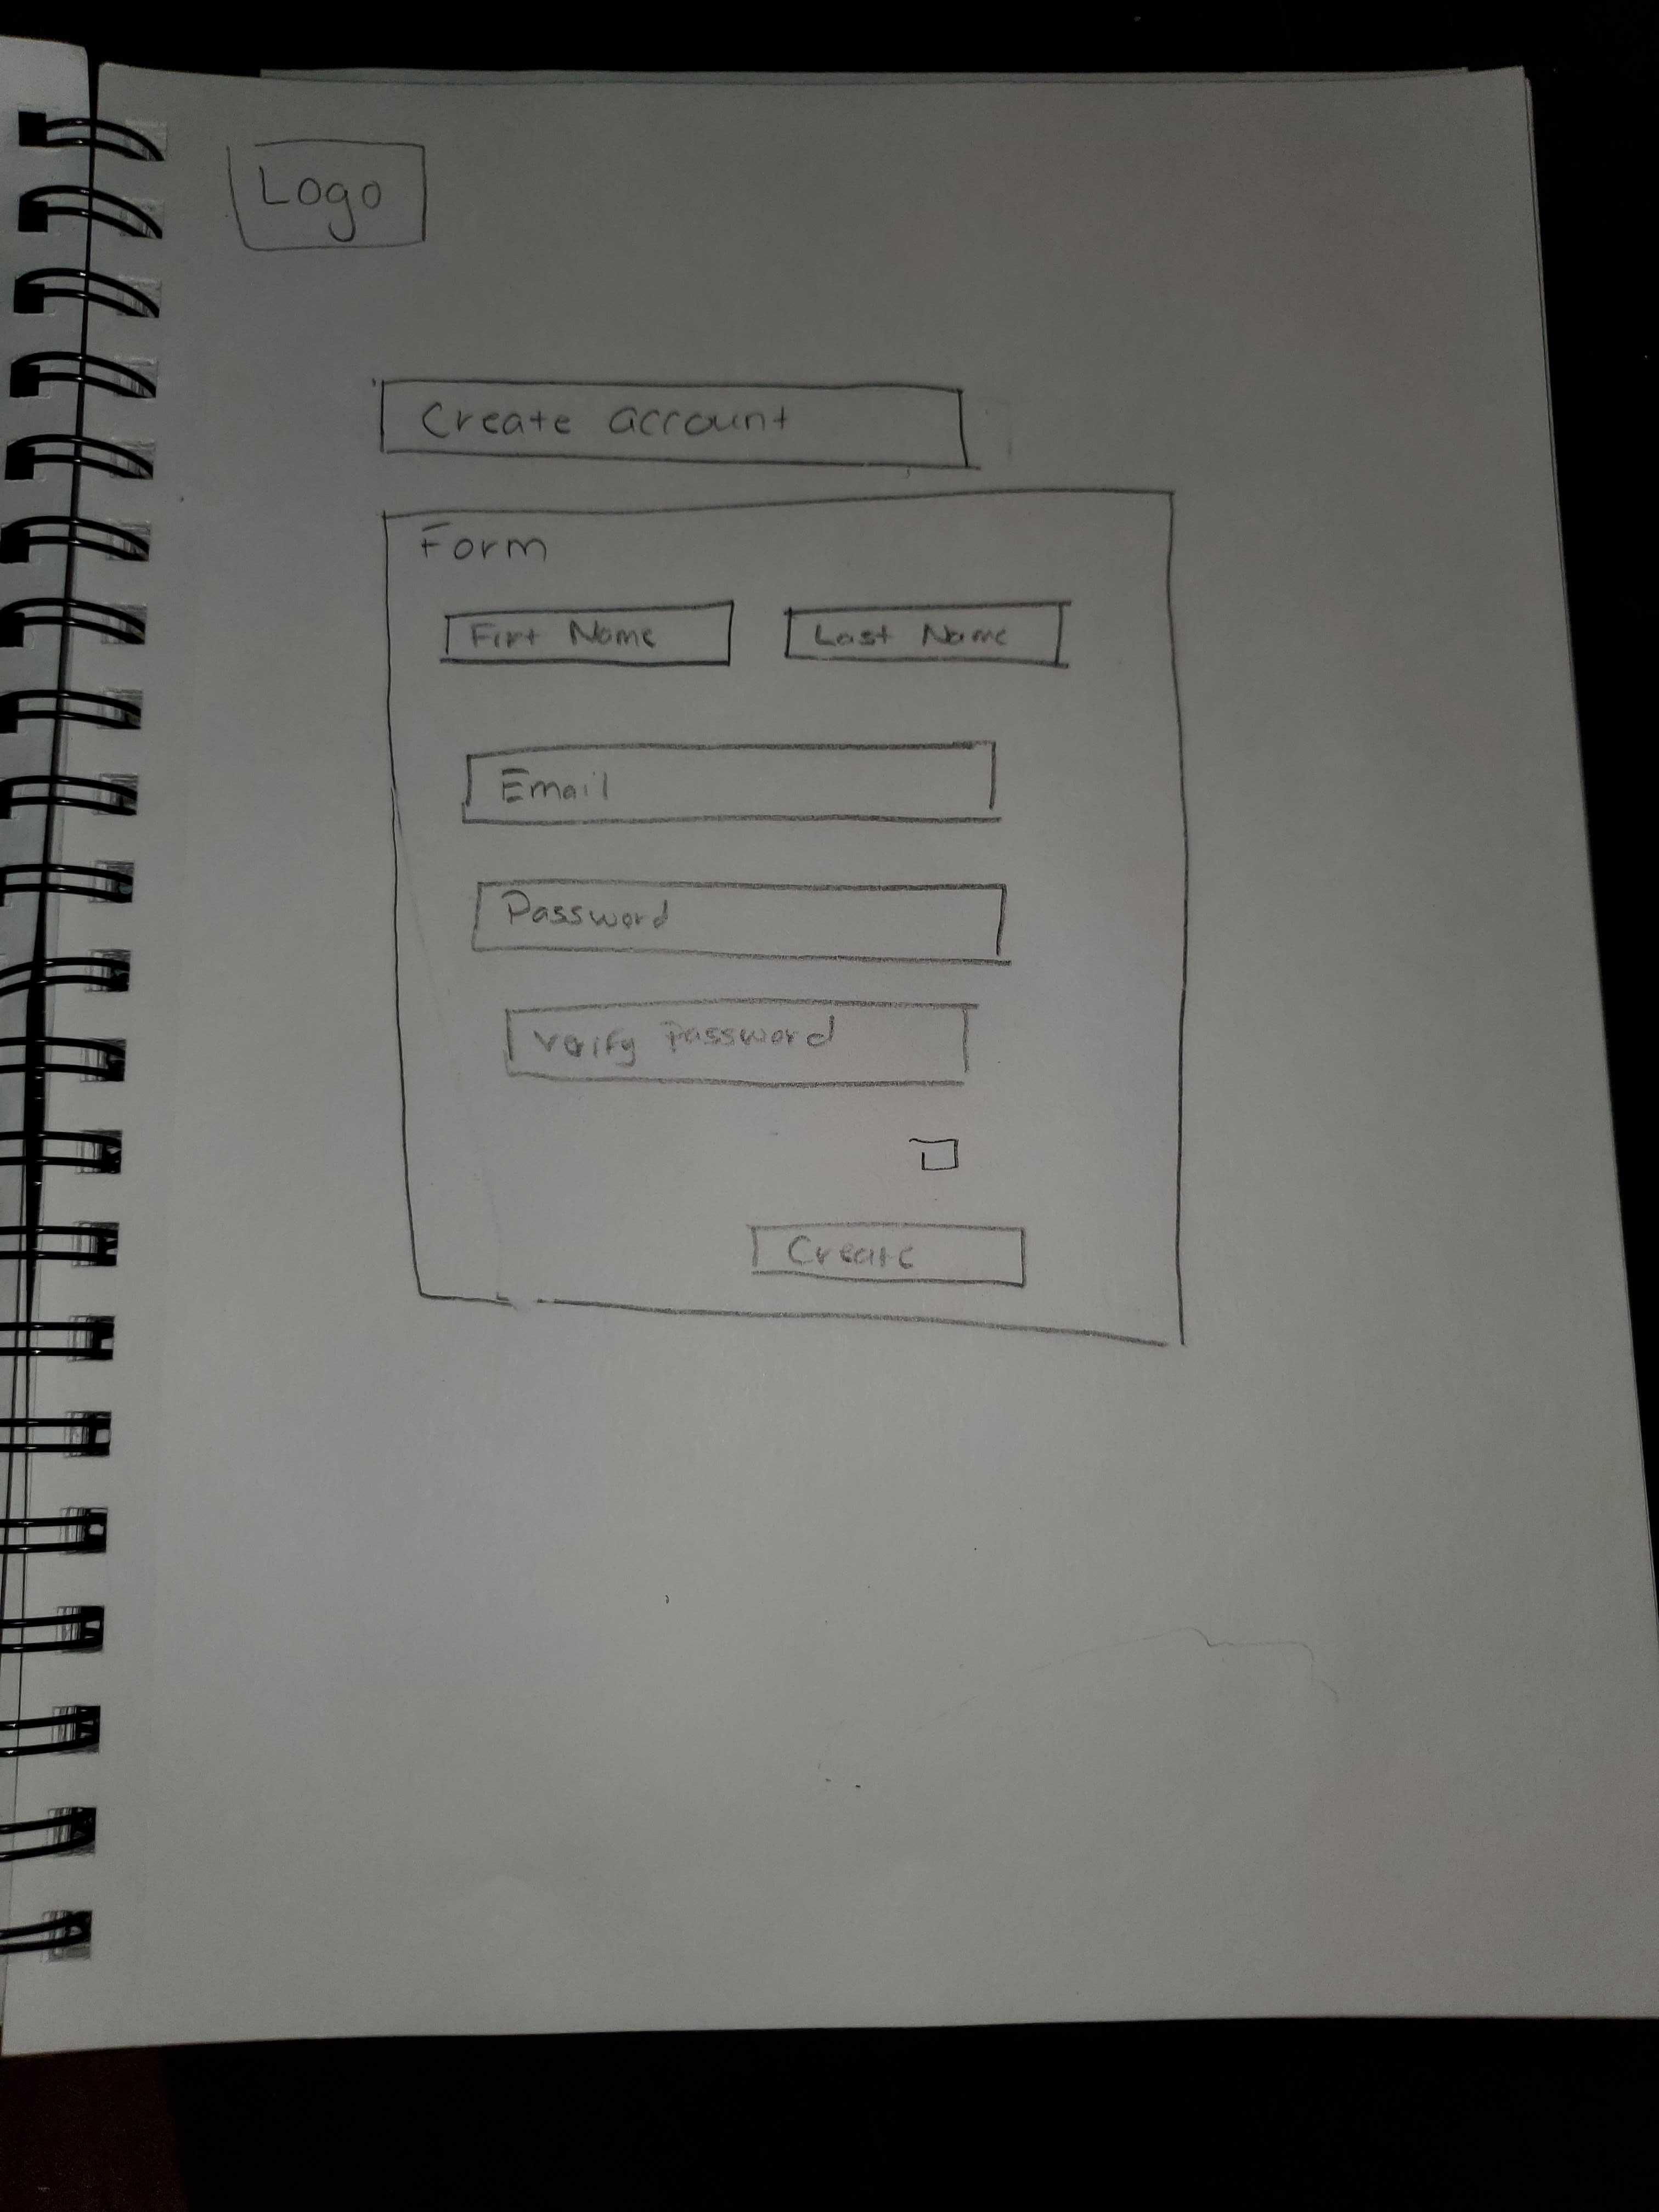 Logo
Create account
Form
First Name Last Name
Email
Password
Verify Password
Create